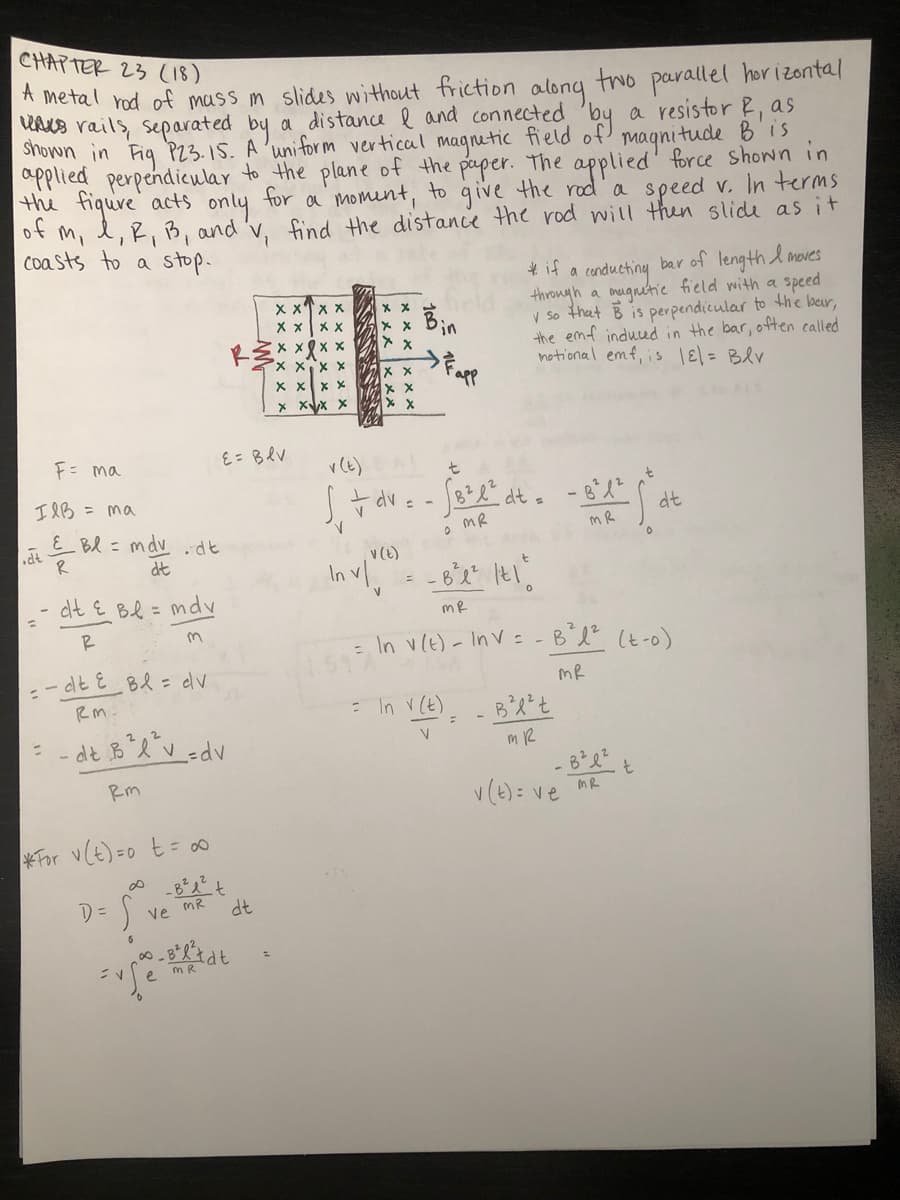 CHAPTER 23 (18)
A metal rod of mass m slides without friction along two parallel horizontal
rails, separated by a distance l and connected by a resistor R, as
shown in Fig P23.15. A uniform vertical magnetic field of magnitude B is
applied perpendicular to the plane of the paper. The applied force shown in
the figure acts only for a moment, to give the rod a speed v. In terms
of m, l, R, B, and v, find the distance the rod will then slide as it
coasts to a stop.
* if a conducting bar of length l moves
through a magnetic field with a speed
v so that B⃗ is perpendicular to the bar,
the emf induced in the bar, often called
motional emf, is |ε| = Blv
x x x x x x B⃗in
x x x x x x
R x x l x x x x
x x x x x x F⃗app
x x x x x x
x x x x x x
F = ma
IlB = ma
.dt - ε/R Bl = m dv/dt . dt
= - dt ε Bl / R = mdv / m
= - dt ε Bl / Rm = dv
= - dt B²l²v / Rm = dv
ε = Blv
∫_v^v(t) 1/v dv = - ∫_0^t B²l²/mR dt = - B²l²/mR ∫_0^t dt
ln v|_v^v(t) = - B²l²/mR |t|_0^t
= ln v(t) - ln v = - B²l²/mR (t-0)
= ln v(t)/v = - B²l²t/mR
v(t) = ve^(-B²l²/mR t)
*For v(t)=0 t = ∞
D = ∫_0^∞ ve^(-B²l²/mR t) dt
= v∫_0^∞ e^(-B²l²/mR t) dt =